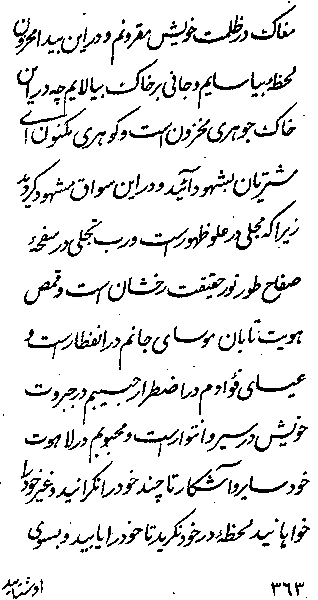 مغاک در ظلمت خویش مقرونم و در این بیدا محزون
لحظهٔ بیاسایم و جانی بر خاک بیالایم چه در این
خاک جوهری مخزون است و گوهری مکنون ای
مشتریان بشهود آئید و در این سواق مشهود گردید
زیرا که مجلی در علو ظهور است و رب تجلی در صفحهٔ
صفاح طور نور حقیقت رخشان است و قمص
هویت تابان موسای جانم در انفطار است و
عیسای فؤادم در اضطرار حبیبم در جبروت
خویش در سیر و انتوار است و محبوبم در لاهوت
خود سایر و آشکار تا چند خود را نگرانید و غیر خود را
خواهانید لحظهٔ در خود نگرید تا خود را یابید و بسوی
۳۶۳